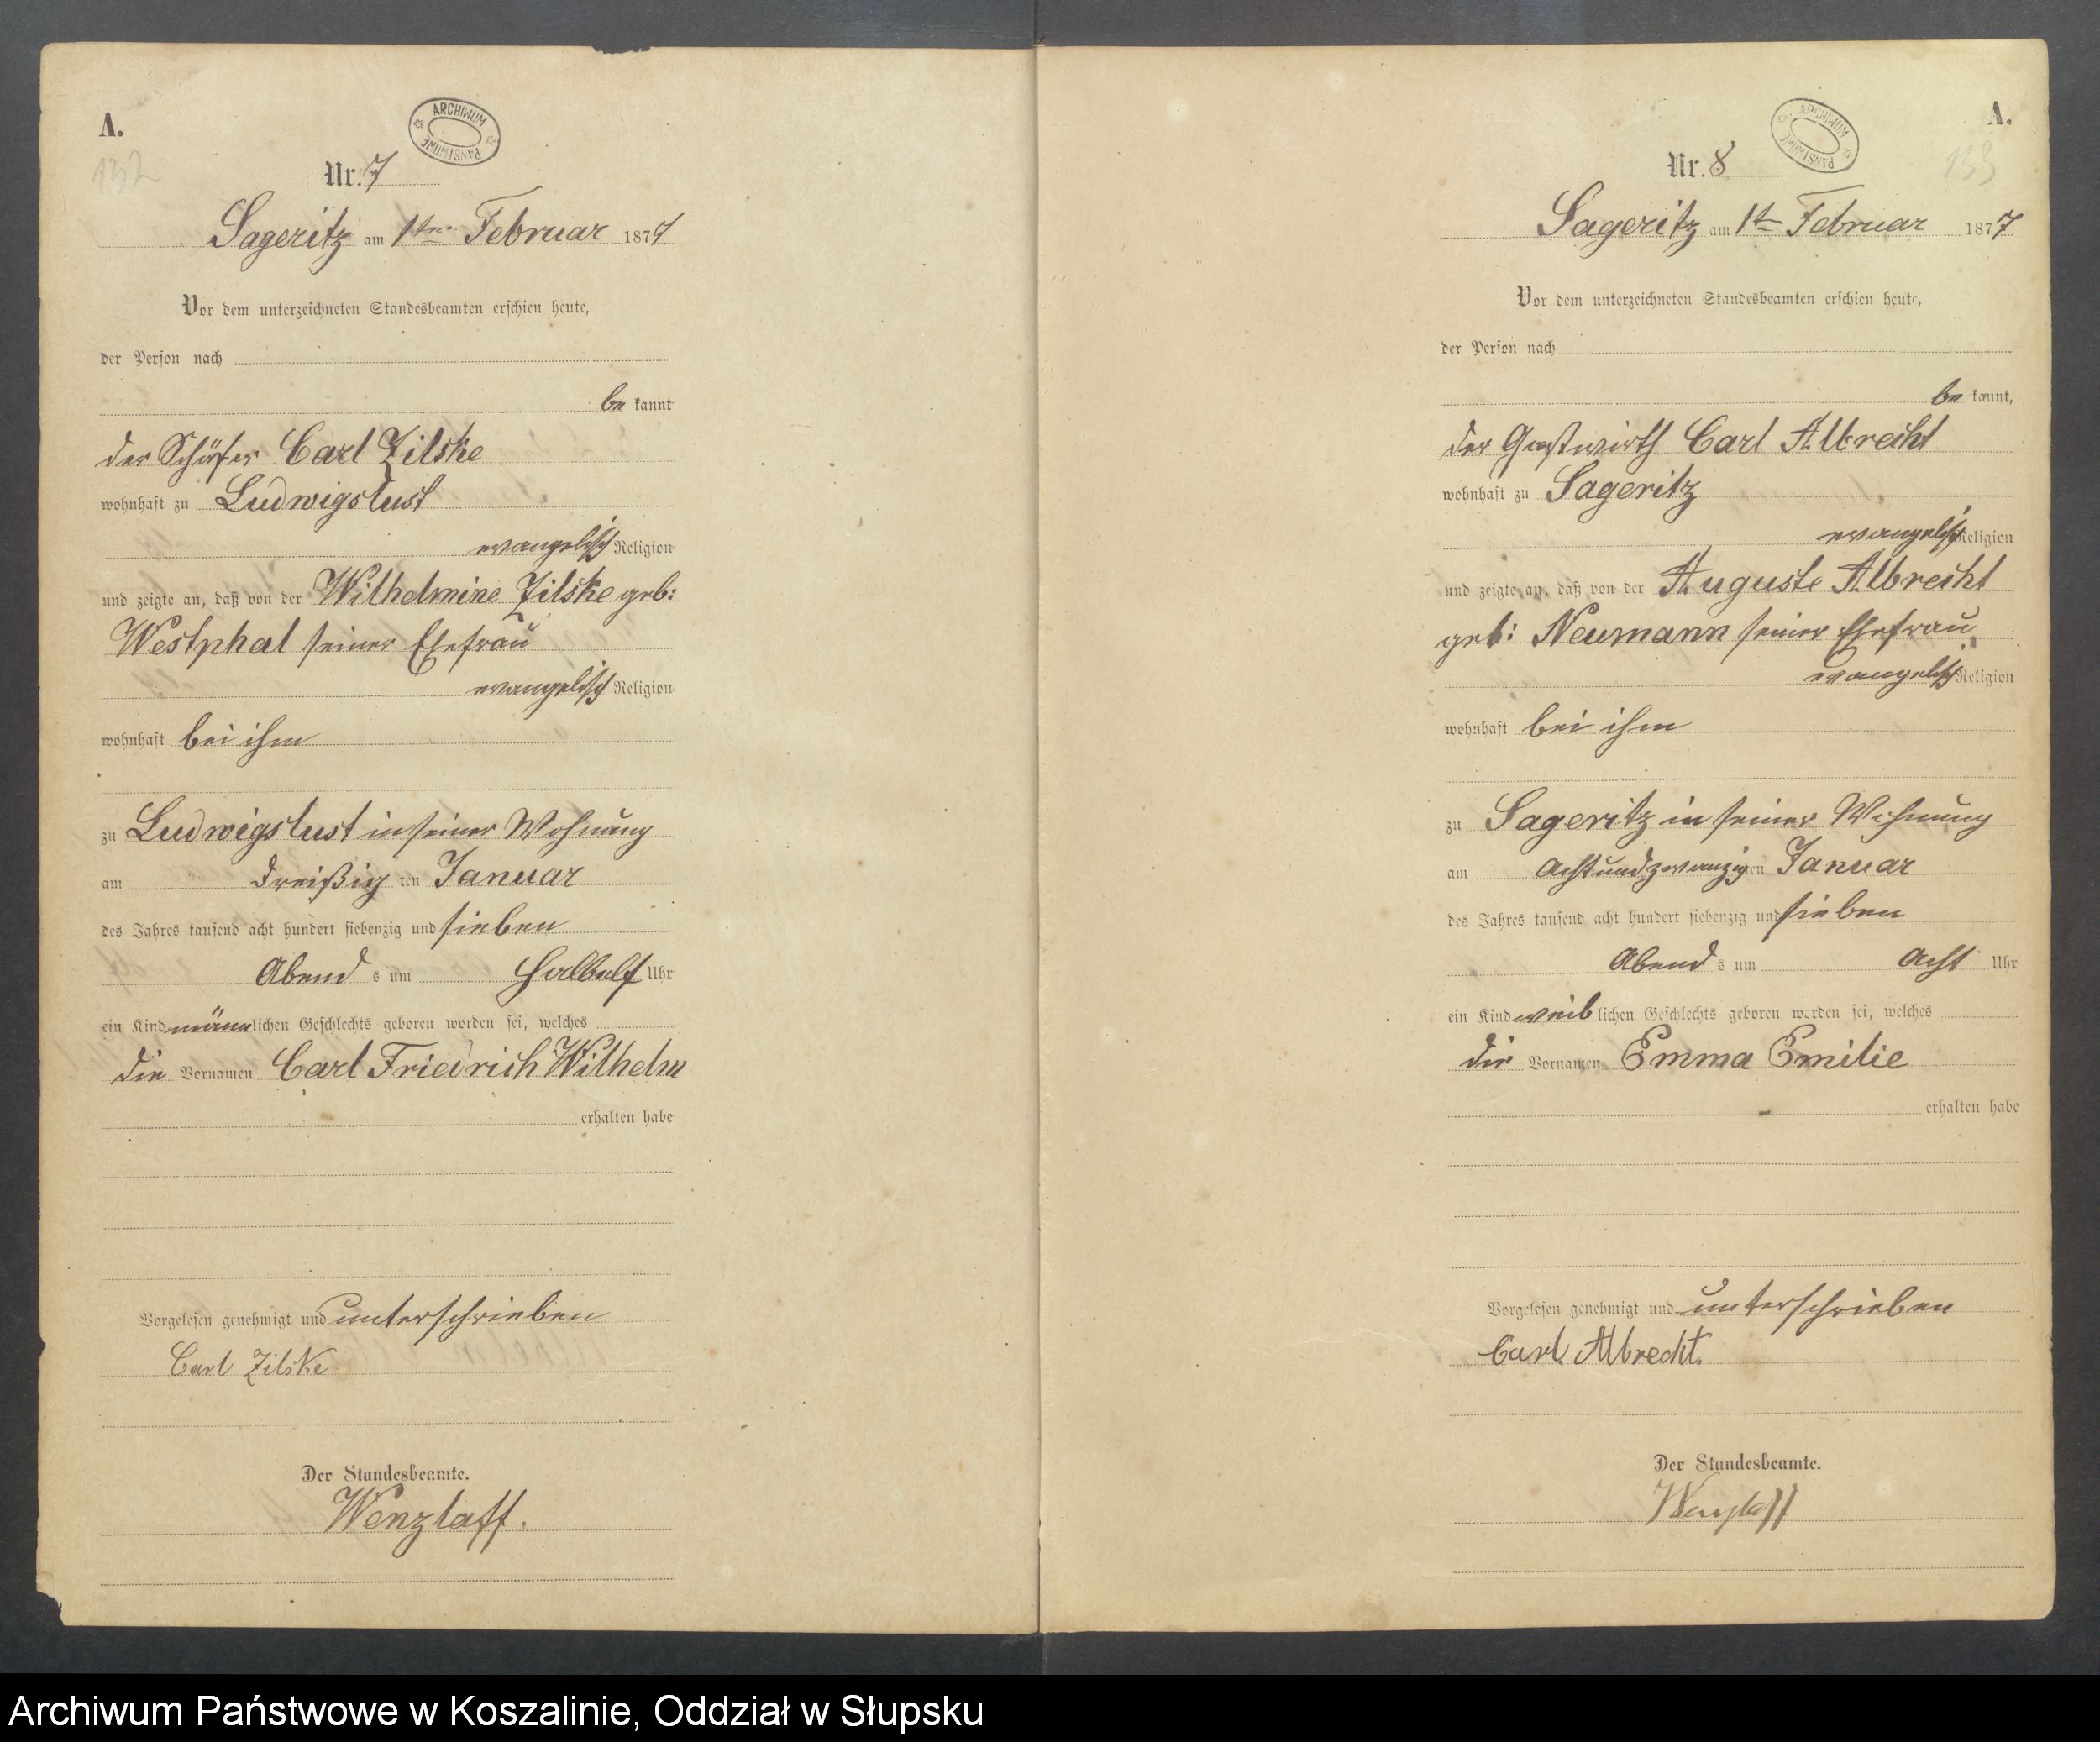 A.
132
ARCHIWUM PAŃSTWOWE
Nr. 7
Sageritz am 1ten Februar 1877
Vor dem unterzeichneten Standesbeamten erschien heute,
der Person nach
be kannt
der Schäfer Carl Zilske
wohnhaft zu Ludwigslust
evangelisch Religion
und zeigte an, daß von der Wilhelmine Zilske geb:
Westphal seiner Ehefrau
evangelisch Religion
wohnhaft bei ihm
zu Ludwigslust in seiner Wohnung
am dreißig ten Januar
des Jahres tausend acht hundert siebenzig und sieben
Abend s um halbelf Uhr
ein Kind männlichen Geschlechts geboren worden sei, welches
die Vornamen Carl Friedrich Wilhelm
erhalten habe
Vorgelesen genehmigt und unterschrieben
Carl Zilske
Der Standesbeamte.
Wenzlaff.
A.
133
ARCHIWUM PAŃSTWOWE
Nr. 8
Sageritz am 1t Februar 1877
Vor dem unterzeichneten Standesbeamten erschien heute,
der Person nach
be kannt,
der Gastwirth Carl Albrecht
wohnhaft zu Sageritz
evangelisch Religion
und zeigte an, daß von der Auguste Albrecht
geb: Neumann seiner Ehefrau
evangelisch Religion
wohnhaft bei ihm
zu Sageritz in seiner Wohnung
am achtundzwanzigen Januar
des Jahres tausend acht hundert siebenzig und sieben
Abend s um acht Uhr
ein Kind weiblichen Geschlechts geboren worden sei, welches
die Vornamen Emma Emilie
erhalten habe
Vorgelesen genehmigt und unterschrieben
Carl Albrecht.
Der Standesbeamte.
Wenzlaff
Archiwum Państwowe w Koszalinie, Oddział w Słupsku